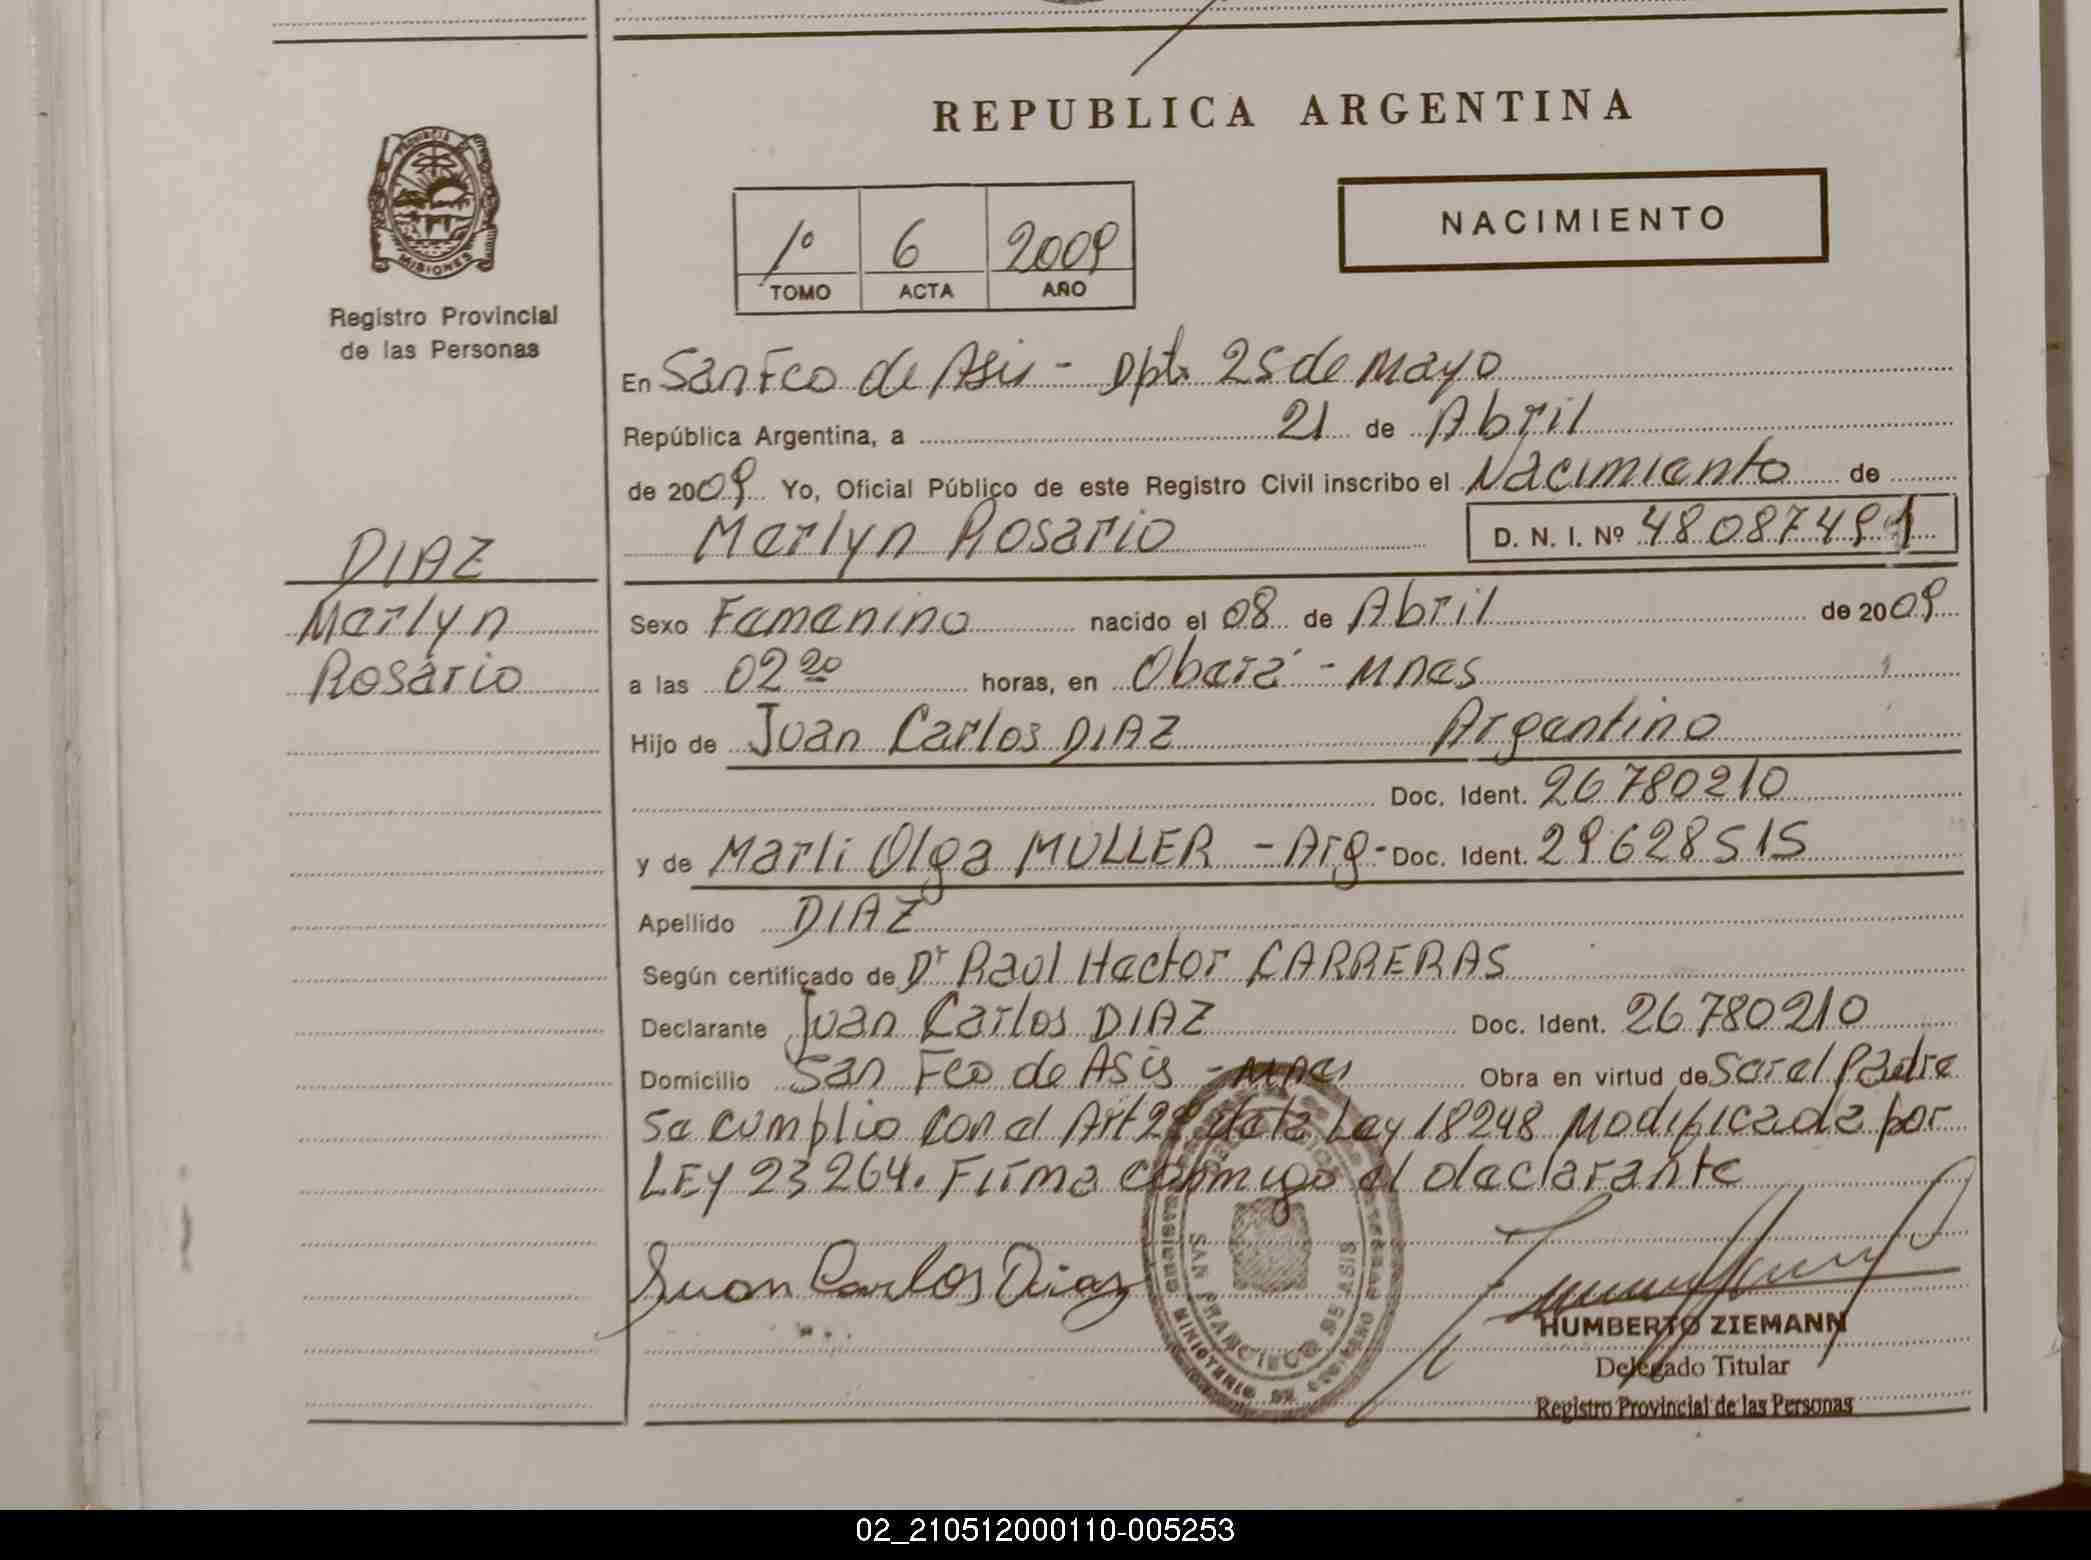 REPUBLICA ARGENTINA
PROVINCIA DE
MISIONES
Registro Provincial
de las Personas
1º 6 2009
TOMO ACTA AÑO
NACIMIENTO
En San Fco de Asis - Dpto 25 de Mayo
República Argentina, a 21 de Abril
de 2009 Yo, Oficial Público de este Registro Civil inscribo el Nacimiento de
Merlyn Rosario D. N. I. Nº 48087491
DIAZ
Merlyn
Rosario
Sexo Femenino nacido el 08 de Abril de 2009
a las 02 20 horas, en Oberá - Mnes
Hijo de Juan Carlos DIAZ Argentino
Doc. Ident. 26780210
y de Marli Olga MULLER - Arg - Doc. Ident. 29628515
Apellido DIAZ
Según certificado de Dr Raul Hector CARRERAS
Declarante Juan Carlos DIAZ Doc. Ident. 26780210
Domicilio San Fco de Asis - Mnes Obra en virtud de Ser el Padre
Se cumplio con el Art 28 de la Ley 18248 Modificada por
LEY 23264. Firma conmigo el declarante
Juan Carlos Diaz
SAN FRANCISCO DE ASIS
MINISTERIO DE GOBIERNO
HUMBERTO ZIEMANN
Delegado Titular
Registro Provincial de las Personas
02_210512000110-005253